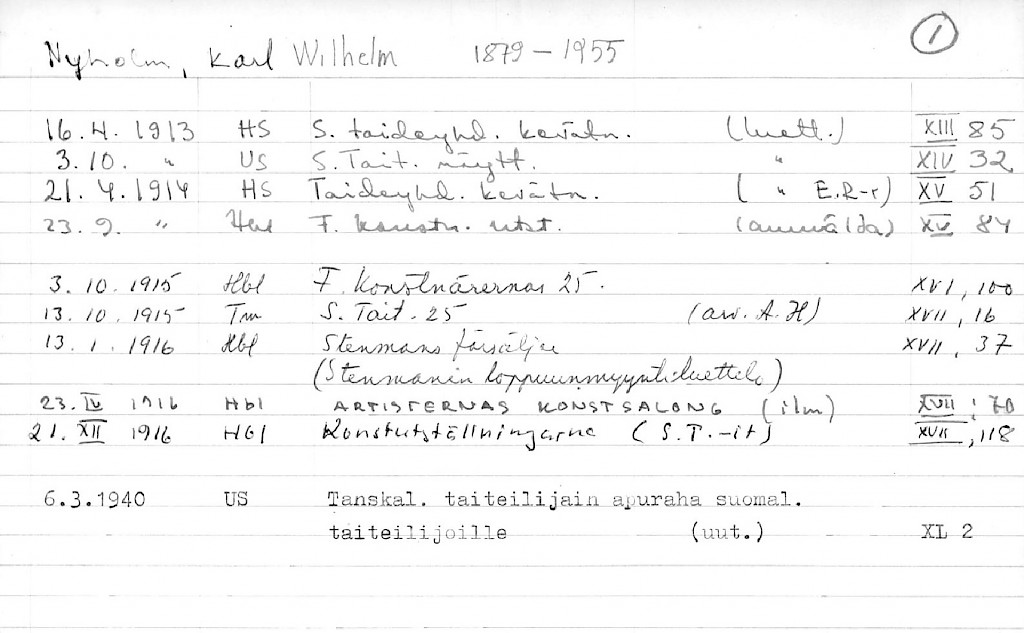 1
Nyholm, Karl Wilhelm 1879-1955
16.4.1913 HS S. taideyhd. kevätn. (luett.) XIII 85
3.10. " US S. Tait. näytt. " XIV 32
21.4.1914 HS Taideyhd. kevätn. ( " E.R-r) XV 51
23.9. " Hbl F. konstn. utst. (anmälda) XV 84
3.10.1915 Hbl F. Konstnärernas 25. XVI, 100
13.10.1915 Tm S. Tait. 25 (arv. A.H) XVII, 16
13.1.1916 Hbl Stenmans försälje XVII, 37
(Stenmanin loppuunmyyntiluettelo)
23.IV 1916 Hbl ARTISTERNAS KONSTSALONG (ilm) XVII, 70
21.XII 1916 Hbl Konstutställningarne (S.T.-it) XVII, 118
6.3.1940 US Tanskal. taiteilijain apuraha suomal.
taiteilijoille (uut.) XL 2